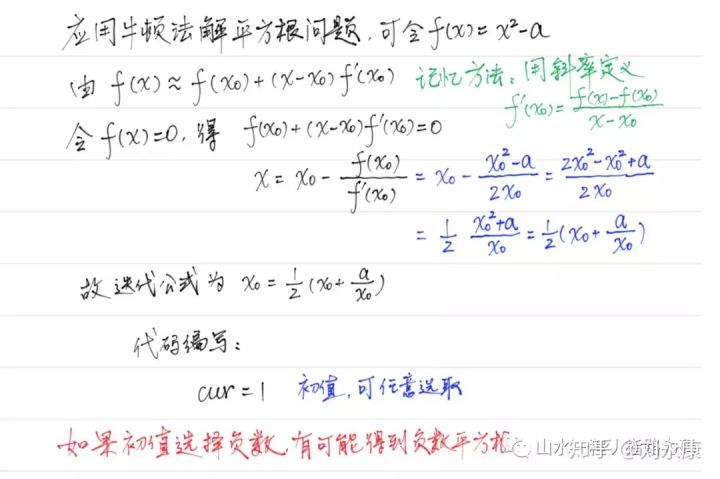 应用牛顿法解平方根问题,可令f(x)=x²-a
由 f(x)≈f(x₀)+(x-x₀)f'(x₀) 记忆方法:用斜率定义
f'(x₀)=\frac{f(x)-f(x₀)}{x-x₀}
令f(x)=0,得 f(x₀)+(x-x₀)f'(x₀)=0
x=x₀-\frac{f(x₀)}{f'(x₀)}=x₀-\frac{x₀²-a}{2x₀}=\frac{2x₀²-x₀²+a}{2x₀}
=\frac{1}{2}\frac{x₀²+a}{x₀}=\frac{1}{2}(x₀+\frac{a}{x₀})
故迭代公式为 x₀=\frac{1}{2}(x₀+\frac{a}{x₀})
代码编写:
cur=1 初值,可任意选取
如果初值选择负数,有可能得到负数平方根
山水知